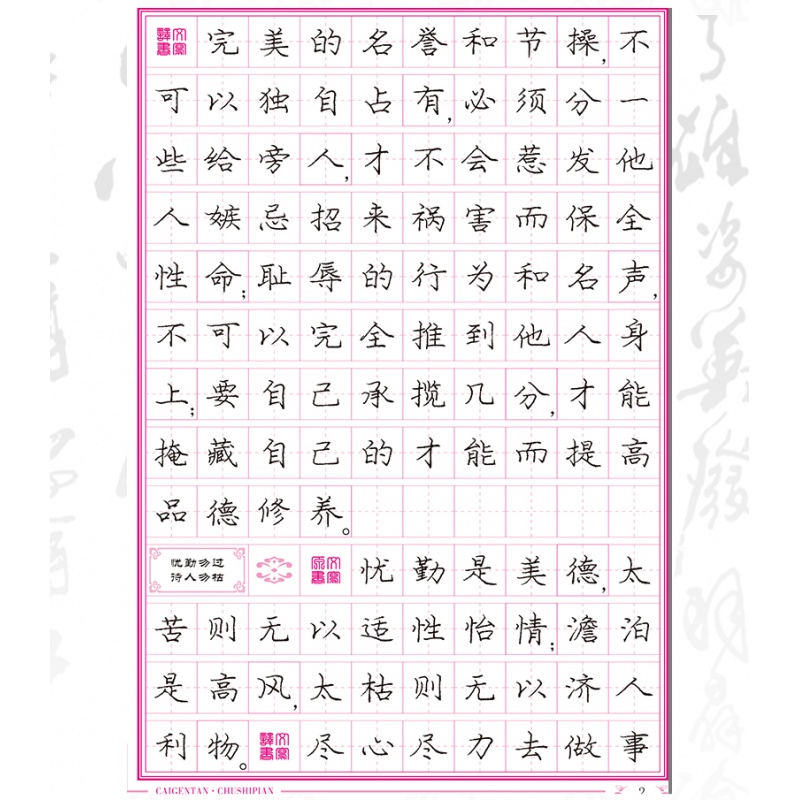 完美的名誉和节操,不
可以独自占有,必须分一
些给旁人,才不会惹发他
人嫉忌招来祸害而保全
性命;耻辱的行为和名声,
不可以完全推到他人身
上;要自己承揽几分,才能
掩藏自己的才能而提高
品德修养。
忧勤勿过
待人勿枯
忧勤是美德,太
苦则无以适性怡情;澹泊
是高风,太枯则无以济人
利物。尽心尽力去做事
CAIGENTAN·CHUSHIPIAN